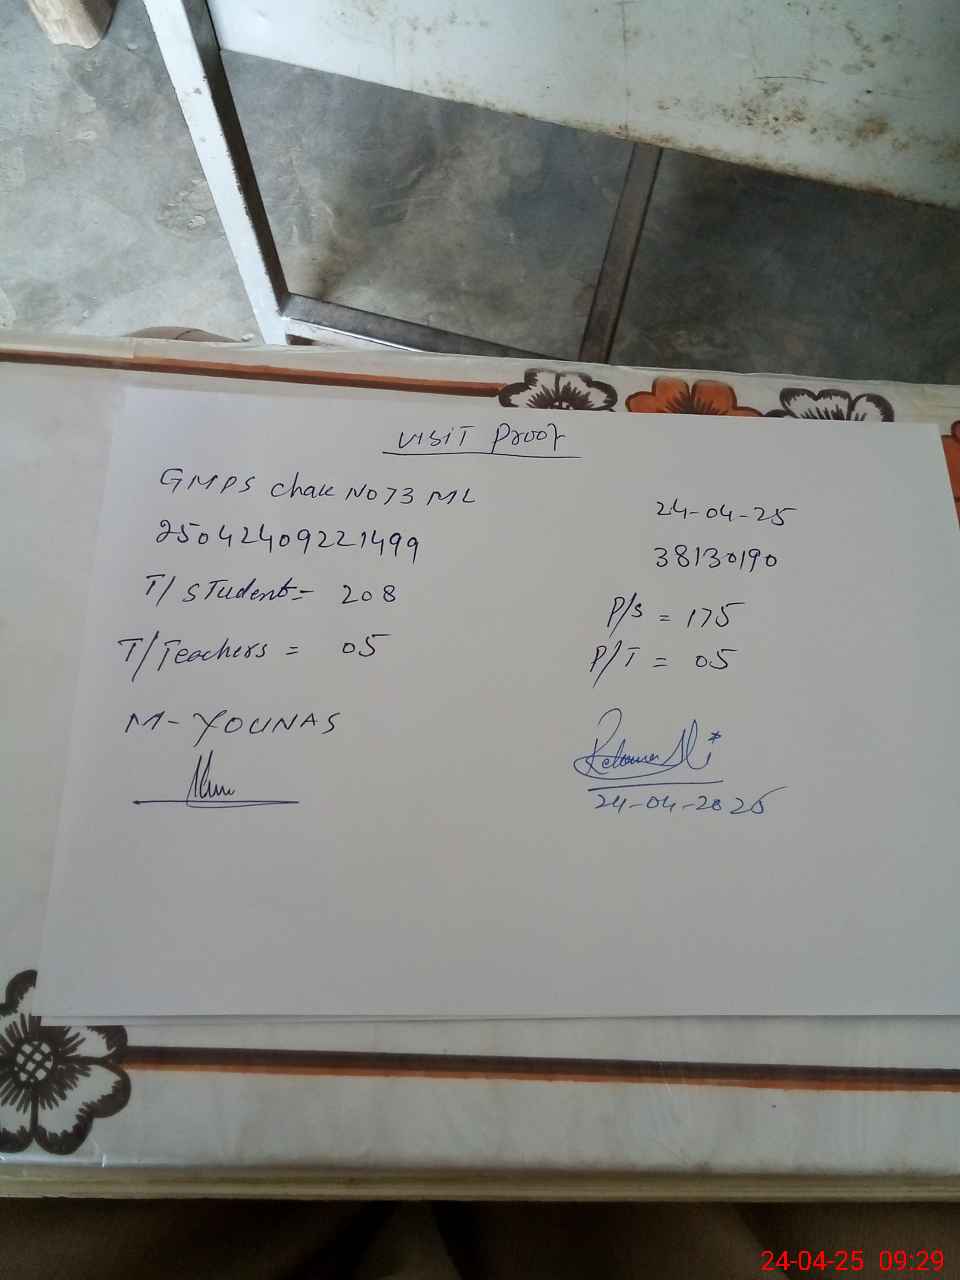 VISIT Proof
GMPS Chak No 73 ML
24-04-25
25042409221499
38130190
T/Student = 208
P/s = 175
T/Teachers = 05
P/T = 05
M-YOUNAS
24-04-2025
24-04-25 09:29